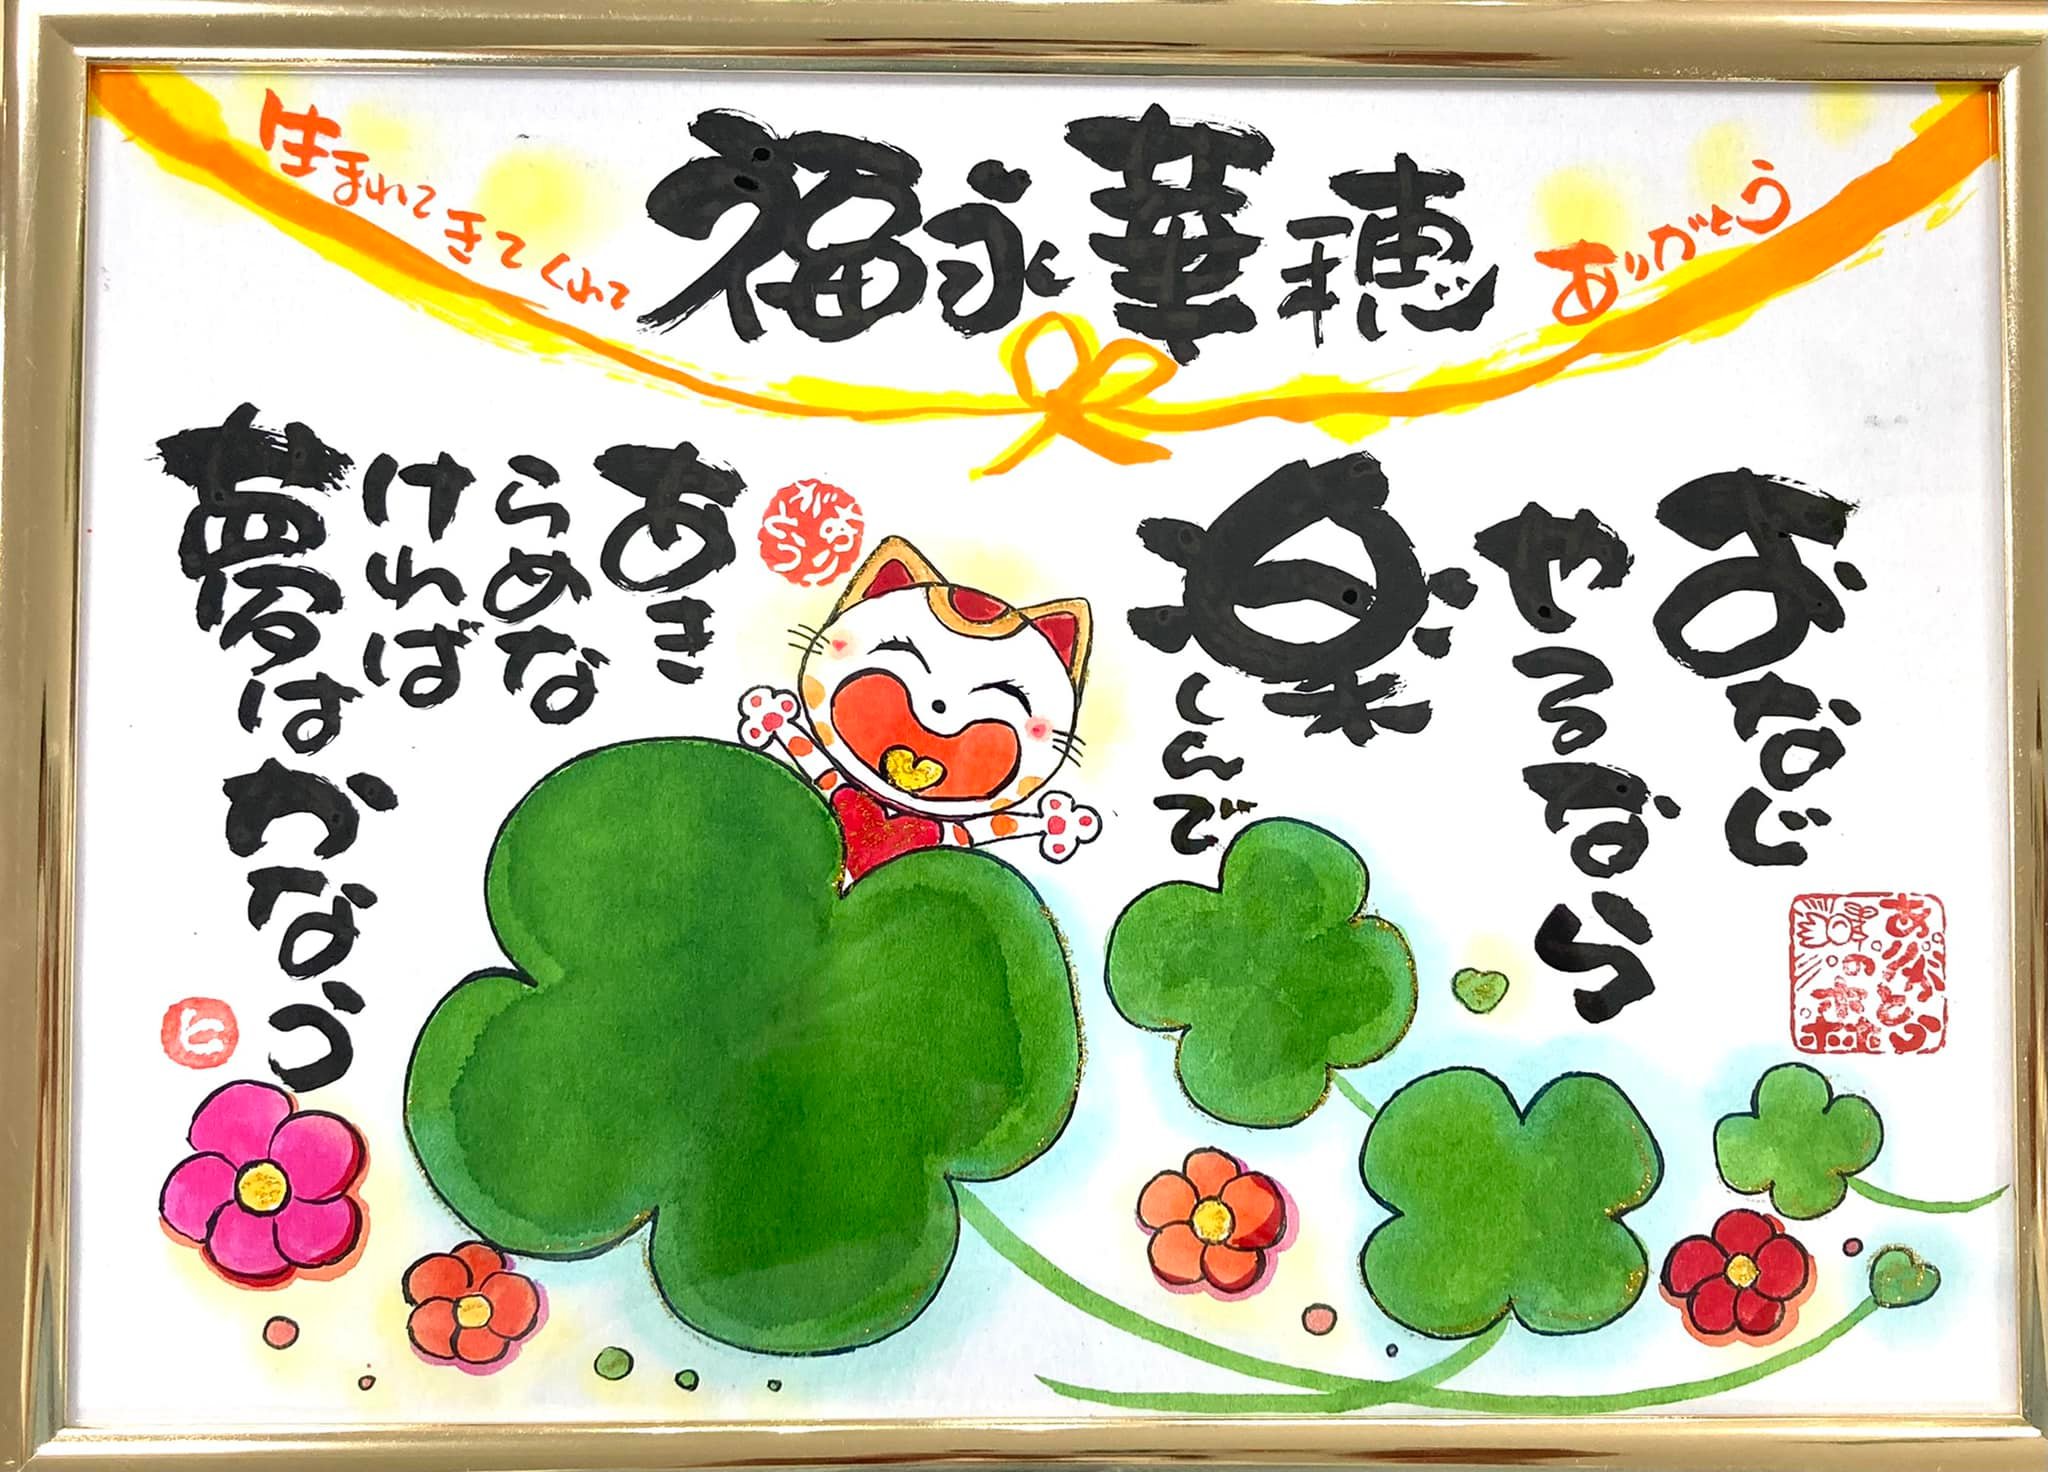 生まれてきてくれて
福永華穂
ありがとう
おなじ
やるなら
楽しんで
あき
らめな
ければ
夢はかなう
ありがとう
ありがとう
の森
ヒ